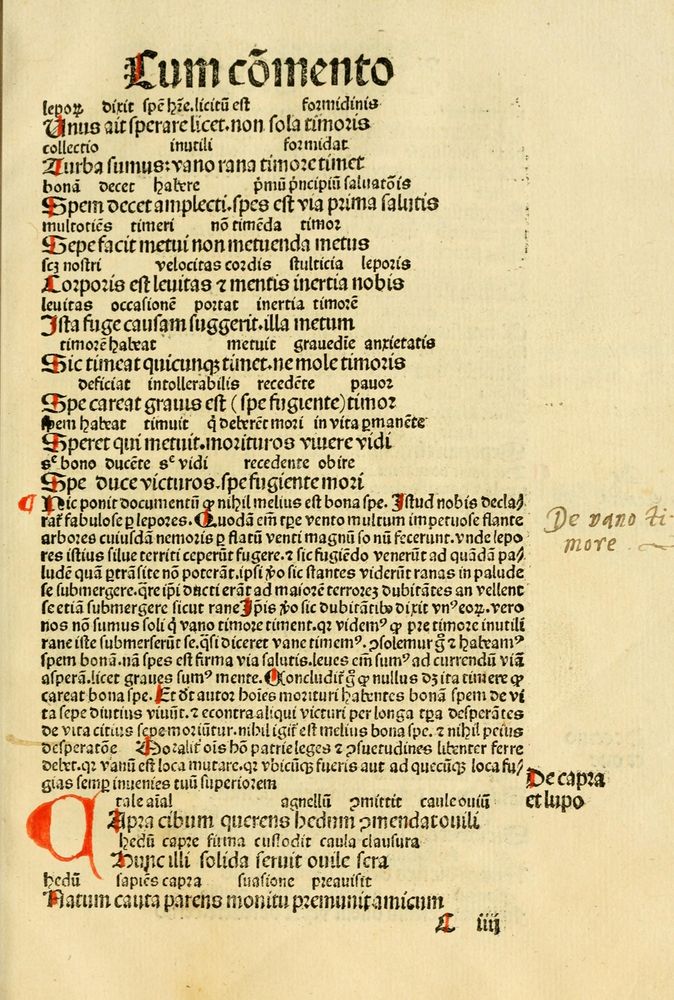 Cum cõmento
lepoꝝ dixit spẽ hr̃e. licitũ est formidinis
Unus ait sperare licet. non sola timoris
collectio inutili formidat
Turba sumus: vano rana timore timet
bonã decet habere p̃mũ p̃ncipiũ saluatõis
Spem decet amplecti. spes est via prima salutis
multotiẽs timeri nõ timẽda timor
Sepe facit metui non metuenda metus
scꝫ nostri velocitas cordis stulticia leporis
Corporis est leuitas ⁊ mentis inertia nobis
leuitas occasionẽ portat inertia timorẽ
Ista fuge causam suggerit. illa metum
timorẽ habeat metuit grauediẽ anxietatis
Sic timeat quicunqꝫ timet. ne mole timoris
deficiat intollerabilis recedẽte pauor
Spe careat grauis est (spe fugiente) timor
spem habeat timuit q̃ deberẽt mori in vita ꝑmanẽte
Speret qui metuit. morituros viuere vidi
sᶜ bono ducẽte sᶜ vidi recedente obire
Spe duce victuros. spe fugiente mori
¶ Hic ponit documentũ ꝙ nihil melius est bona spe. Istud nobis decla/
rat᷑ fabulose ꝑ lepores. Quodã em̃ tꝑe vento multum impetuose flante
arbores cuiusdam nemoris ꝑ flatũ venti magnũ sonũ fecerunt. vnde lepo
res istius silue territi ceperũt fugere. ⁊ sic fugiẽdo venerũt ad quãdã pa/
ludẽ quã ꝑtrãsite nõ poterãt. ipsi ꝟo sic stantes viderũt ranas in palude
se submergere. q̃re ip̃i ducti erãt ad maiorẽ terroreꝫ dubitãtes an vellent
se etiã submergere sicut rane Ip̃is ꝟo sic dubitãtibꝰ dixit vnꝰ eoꝝ. vero
nos nõ sumus soli q̃ vano timore timent. qꝛ videmꝰ ꝙ pre timore inutili
rane iste submerserũt se. q̃si diceret vane timemꝰ. ꝯsolemur g̊ ⁊ habeamꝰ
spem bonã. nã spes est firma via salutis. leues em̃ sumꝰ ad currendũ viã
asperã. licet graues sumꝰ mente. Cõcludit᷑ g̊ ꝙ nullus dꝫ ita timere ꝙ
careat bona spe. Et dt̃ autor hoĩes morituri habentes bonã spem de vi
ta sepe diutius viuũt. ⁊ econtra aliqui victuri per longa tꝑa desperãtes
de vita citius sepe moriũtur. nihil igit᷑ est melius bona spe. ⁊ nihil peius
desperatõe Moralit᷑ oĩs hõ patrie leges ⁊ ꝯsuetudines libenter ferre
debet. qꝛ vanũ est loca mutare. qꝛ vbicũqꝫ fueris aut ad quecũqꝫ loca fu/
gias semꝑ inuenies tuũ superiorem
De vano ti-
more
De capra
et lupo
tale aĩal agnellũ ꝯmittit caule ouiũ
Capra cibum querens hedum ꝯmendat ouili
hedũ capre firma custodit caula clausura
Hunc illi solida seruit ouile sera
hedũ sapiẽs capra suasione preauisit
Natum cauta parens monitu premunit amicum
A iiij